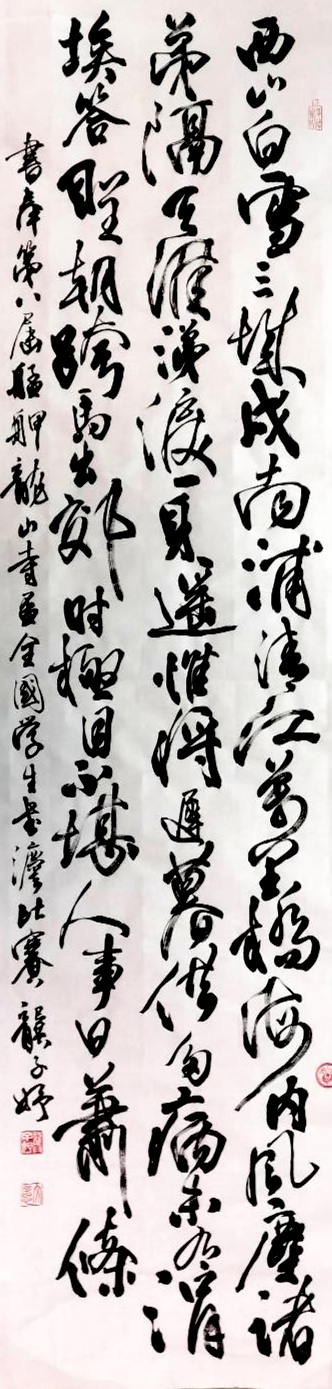 西山白雪三城戍南浦清江萬里橋海內風塵諸
弟隔天涯涕淚一身遙惟將遲暮供多病未有涓
埃答聖朝跨馬出郊時極目不堪人事日蕭條
書奉第八屆艋舺龍山寺盃全國學生書法比賽 龔子妤